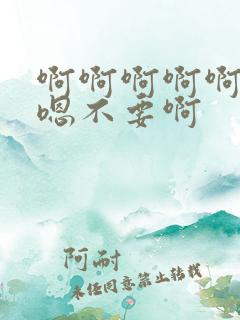 啊啊啊啊啊
嗯不要啊
阿耐
未经同意禁止转载